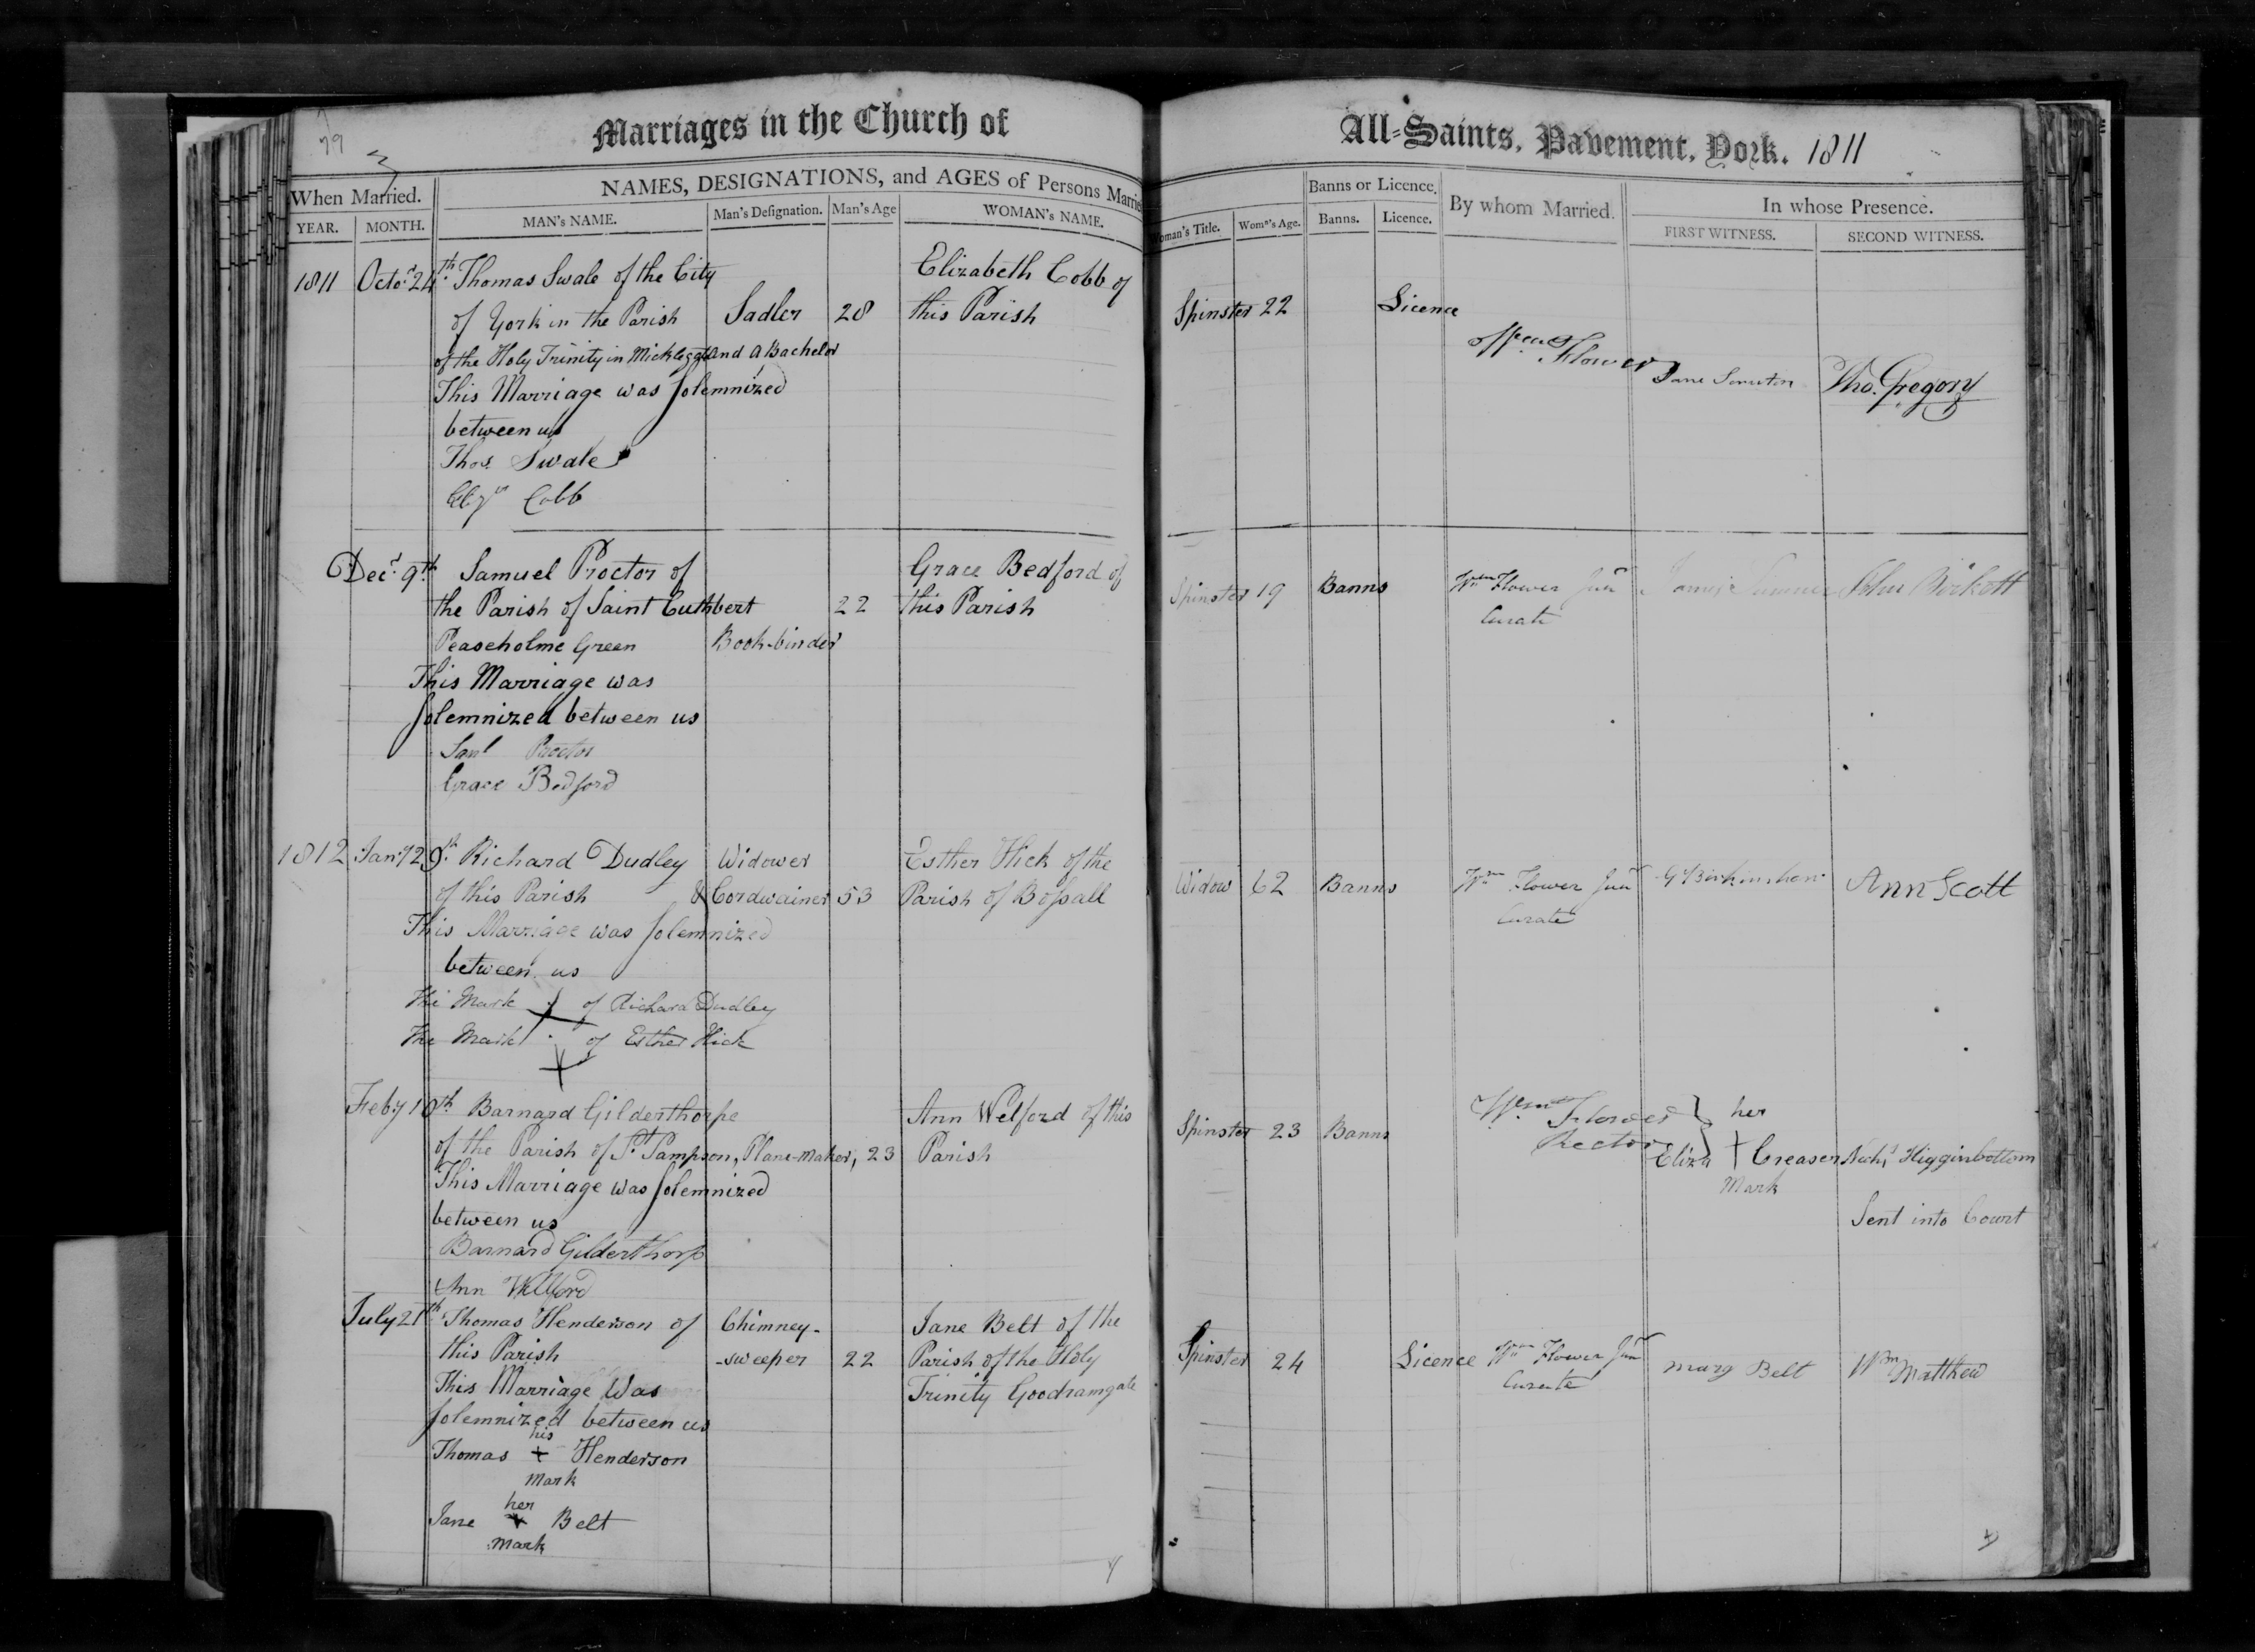 79
Marriages in the Church of
All-Saints, Pavement, York. 1811
When Married.
NAMES, DESIGNATIONS, and AGES of Persons Marrie
Banns or Licence.
By whom Married.
In whose Presence.
YEAR.
MONTH.
MAN's NAME.
Man's Designation.
Man's Age
WOMAN's NAME.
Woman's Title.
Wom's Age.
Banns.
Licence.
FIRST WITNESS.
SECOND WITNESS.
1811 Octor 24th Thomas Swale of the City
of York in the Parish
of the Holy Trinity in Micklegate and a Bachelor
Sadler
28
Elizabeth Cobb of
this Parish
Spinster 22
Licence
Flower
Jane
Tho. Gregory
This Marriage was solemnized
between us
Thos Swale
Elizth Cobb
Decr 9th Samuel Proctor of
the Parish of Saint Cuthbert
Peaseholme Green
Book-binder
22
Grace Bedford of
this Parish
Spinster 19
Banns
Wm Flower Junr
Curate
James
John Birkett
This Marriage was
solemnized between us
Saml Proctor
Grace Bedford
1812 Jany 29th Richard Dudley
of this Parish
Widower
& Cordwainer
53
Esther Hick of the
Parish of Bossall
Widow 62
Banns
Wm Flower Junr
Curate
G Birkinshaw
Ann Scott
This Marriage was solemnized
between us
The Mark + of Richard Dudley
The Mark + of Esther Hick
Feby 10th Barnard Gilderthorpe
of the Parish of St Sampson, Plane-maker, 23
Ann Welford of this
Parish
Spinster 23
Banns
Wm Flower
Rector
her
Eliza + Creaser
Mark
Nichs Higginbottom
Sent into Court
This Marriage was solemnized
between us
Barnard Gilderthorp
Ann Welford
July 21th Thomas Henderson of
this Parish
Chimney-
-sweeper
22
Jane Belt of the
Parish of the Holy
Trinity Goodramgate
Spinster 24
Licence
Wm Flower Junr
Curate
Mary Belt
Wm Matthew
This Marriage Was
solemnized between us
his
Thomas + Henderson
Mark
her
Jane + Belt
Mark